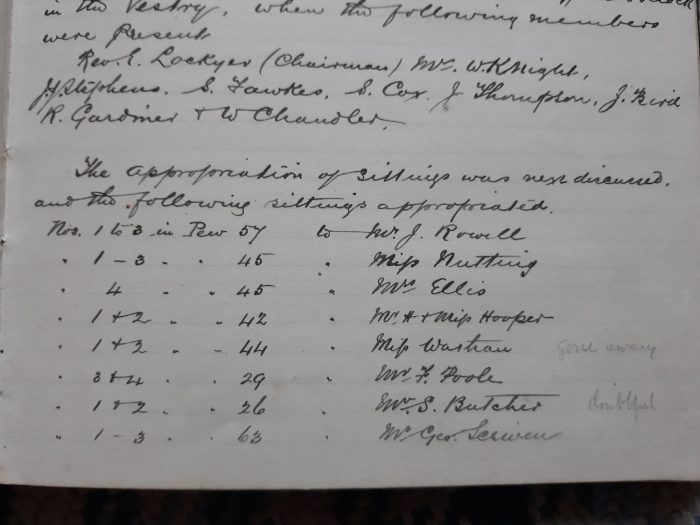 in the Vestry, when the following members
were Present
Rev. E. Lockyer (Chairman) Mr. W Knight,
J. Stephens. S. Fawkes, S. Cox. J Thompson, J. Bird
R. Gardner & W Chandler.
The appropriation of sittings was next discussed,
and the following sittings appropriated.
Nos. 1 to 3 in Pew 57 to Mr. J. Rowell
" 1 - 3 " " 45 " Miss Nutting
" 4 " " 45 " Mrs Ellis
" 1 & 2 " " 42 " Mr. H & Miss Hooper
" 1 & 2 " " 44 " Miss gone away
" 3 & 4 " " 29 " Mr F. Poole
" 1 & 2 " " 26 " Mr. S. Butcher doubtful
" 1 - 3 " " 63 " Mr Geo. Scriven